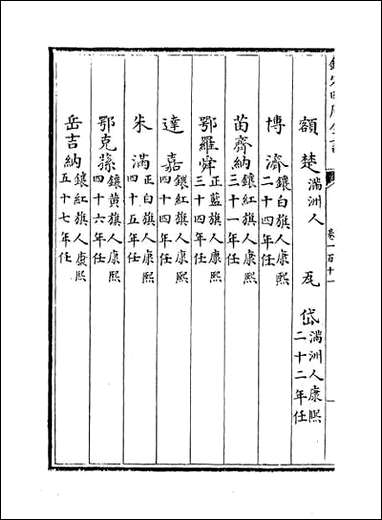 欽定四庫全書
卷一百十一
額楚 滿洲人 瓦岱 滿洲人康熙二十二年任
博濟 鑲白旗人康熙二十四年任
苗齊納 鑲紅旗人康熙三十一年任
鄂羅舜 正藍旗人康熙三十四年任
達嘉 鑲紅旗人康熙四十四年任
朱滿 正白旗人康熙四十五年任
鄂克蓀 鑲黃旗人康熙四十六年任
岳吉納 鑲紅旗人康熙五十七年任